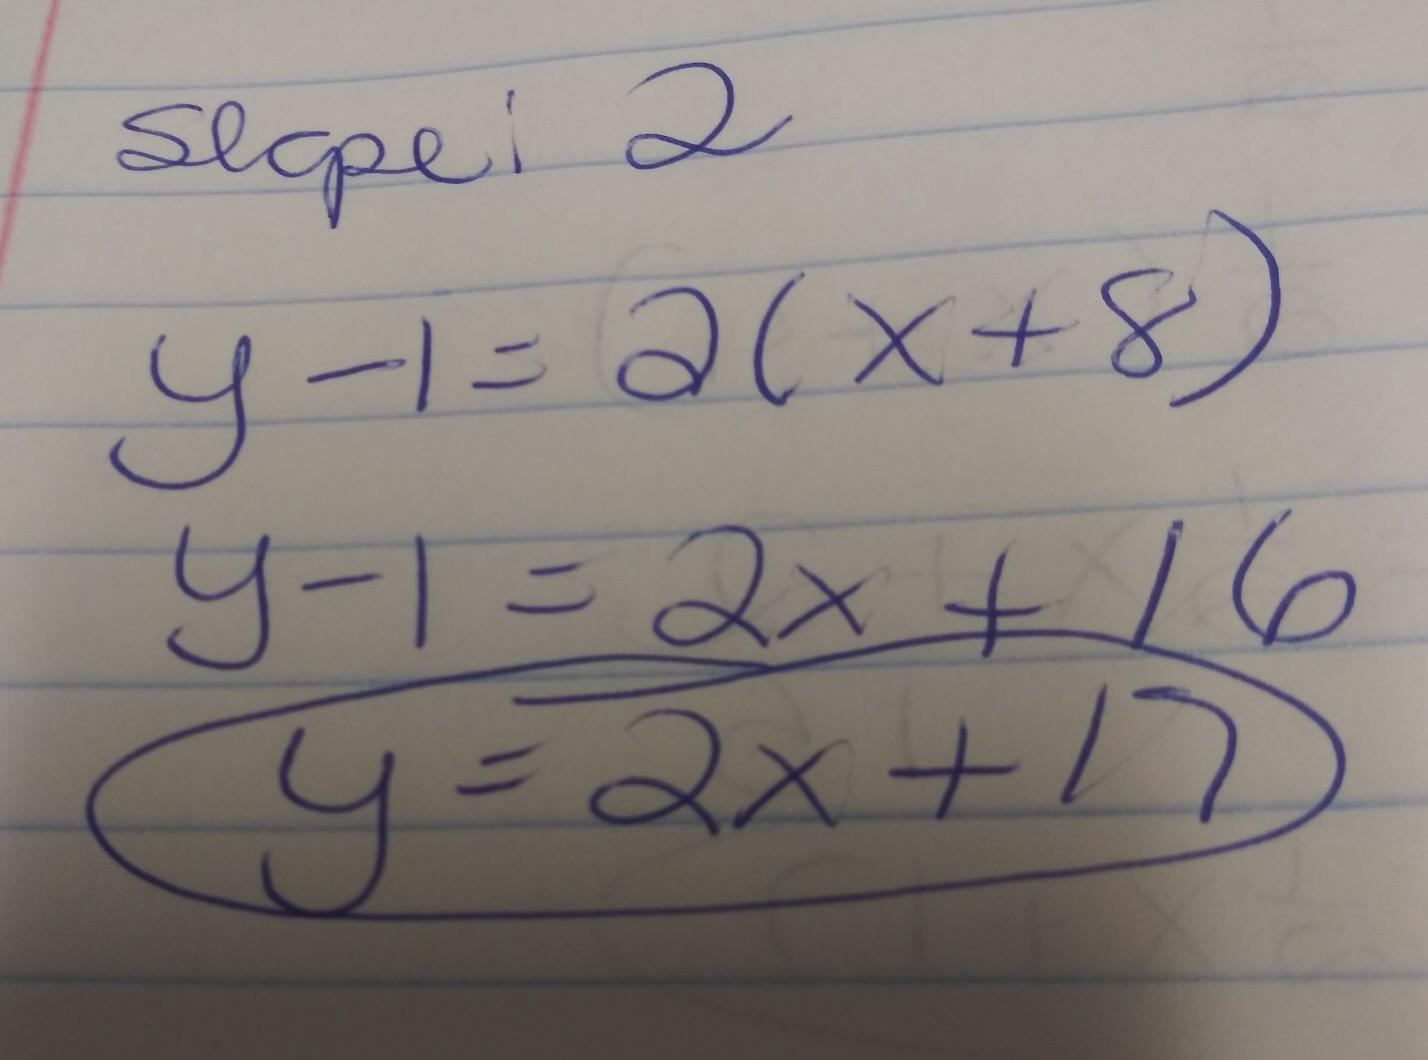 slope: 2
y - 1 = 2(x + 8)
y - 1 = 2x + 16
y = 2x + 17